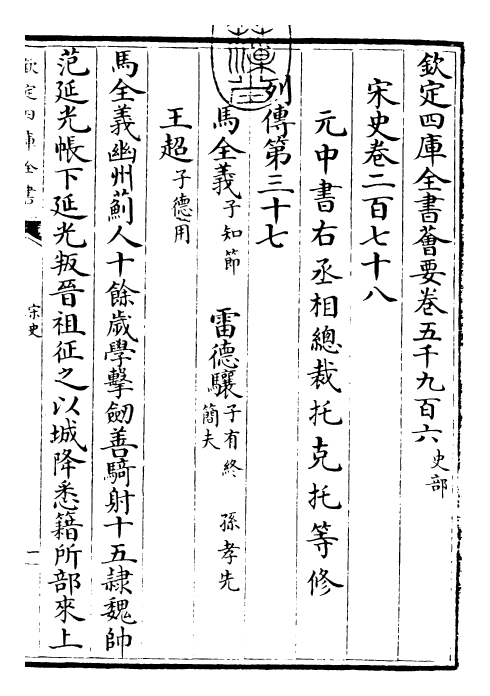 欽定四庫全書薈要卷五千九百六 史部
宋史卷二百七十八
元中書右丞相總裁托克托等修
列傳第三十七
馬全義 子知節 雷德驤 子有終 孫孝先 簡夫
王超 子德用
馬全義幽州薊人十餘歲學擊劒善騎射十五隷魏帥
范延光帳下延光叛晉祖征之以城降悉籍所部來上
欽定四庫全書
宋史
一